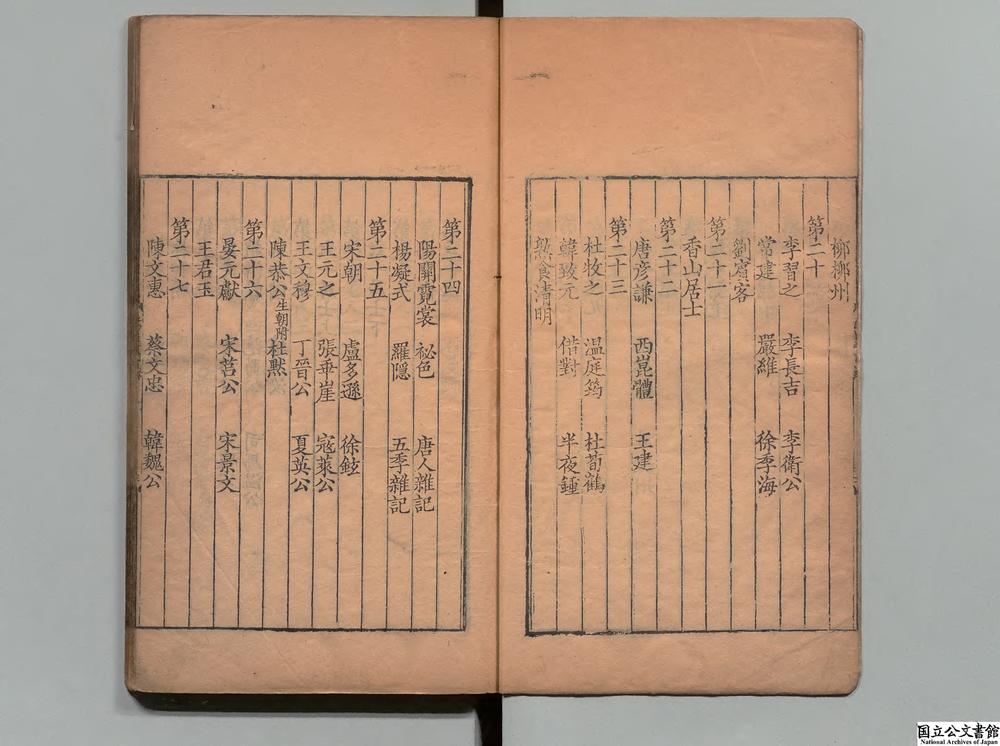 柳柳州
第二十
李習之 李長吉 李衛公
常建 嚴維 徐季海
劉賓客
第二十一
香山居士
第二十二
唐彦謙 西崑體 王建
第二十三
杜牧之 温庭筠 杜荀鶴
韓致元 借對 半夜鍾
熟食清明
第二十四
陽關霓裳 祕色 唐人雜記
楊凝式 羅隠 五季雜記
第二十五
宋朝 盧多遜 徐鉉
王元之 張乖崖 寇萊公
王文穆 丁晉公 夏英公
陳恭公生朝附 杜黙
第二十六
晏元獻 宋莒公 宋景文
王君玉
第二十七
陳文惠 蔡文忠 韓魏公
国立公文書館
National Archives of Japan